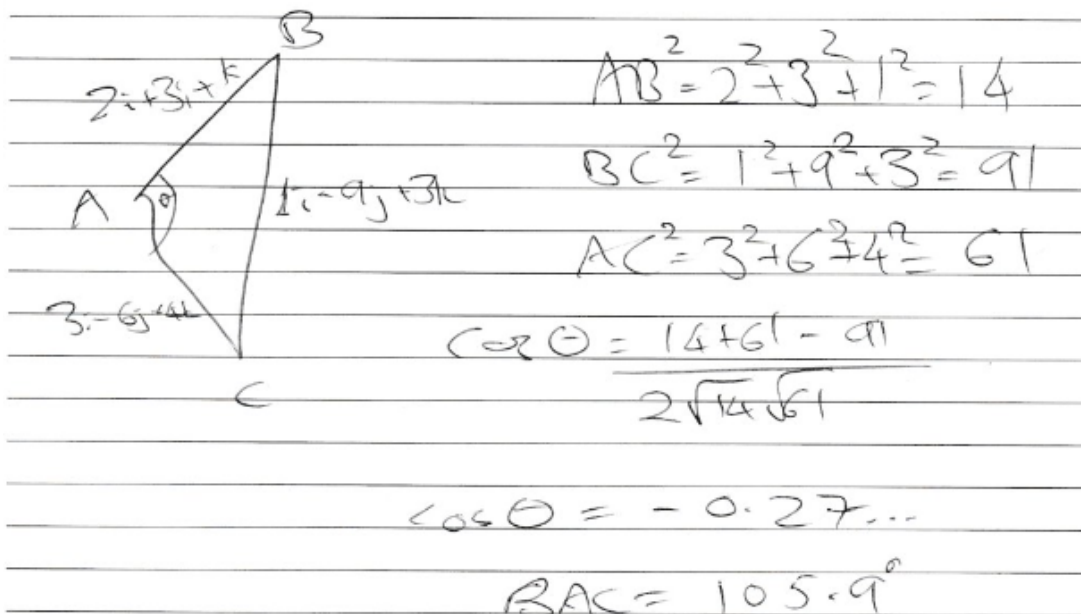 B
2i+3j+k
A
θ
1i-9j+3k
3i-6j+4k
C
AB² = 2²+3²+1² = 14
BC² = 1²+9²+3² = 91
AC² = 3²+6²+4² = 61
cos θ = 14+61-91
2√14√61
cos θ = -0.27...
BAC = 105.9°